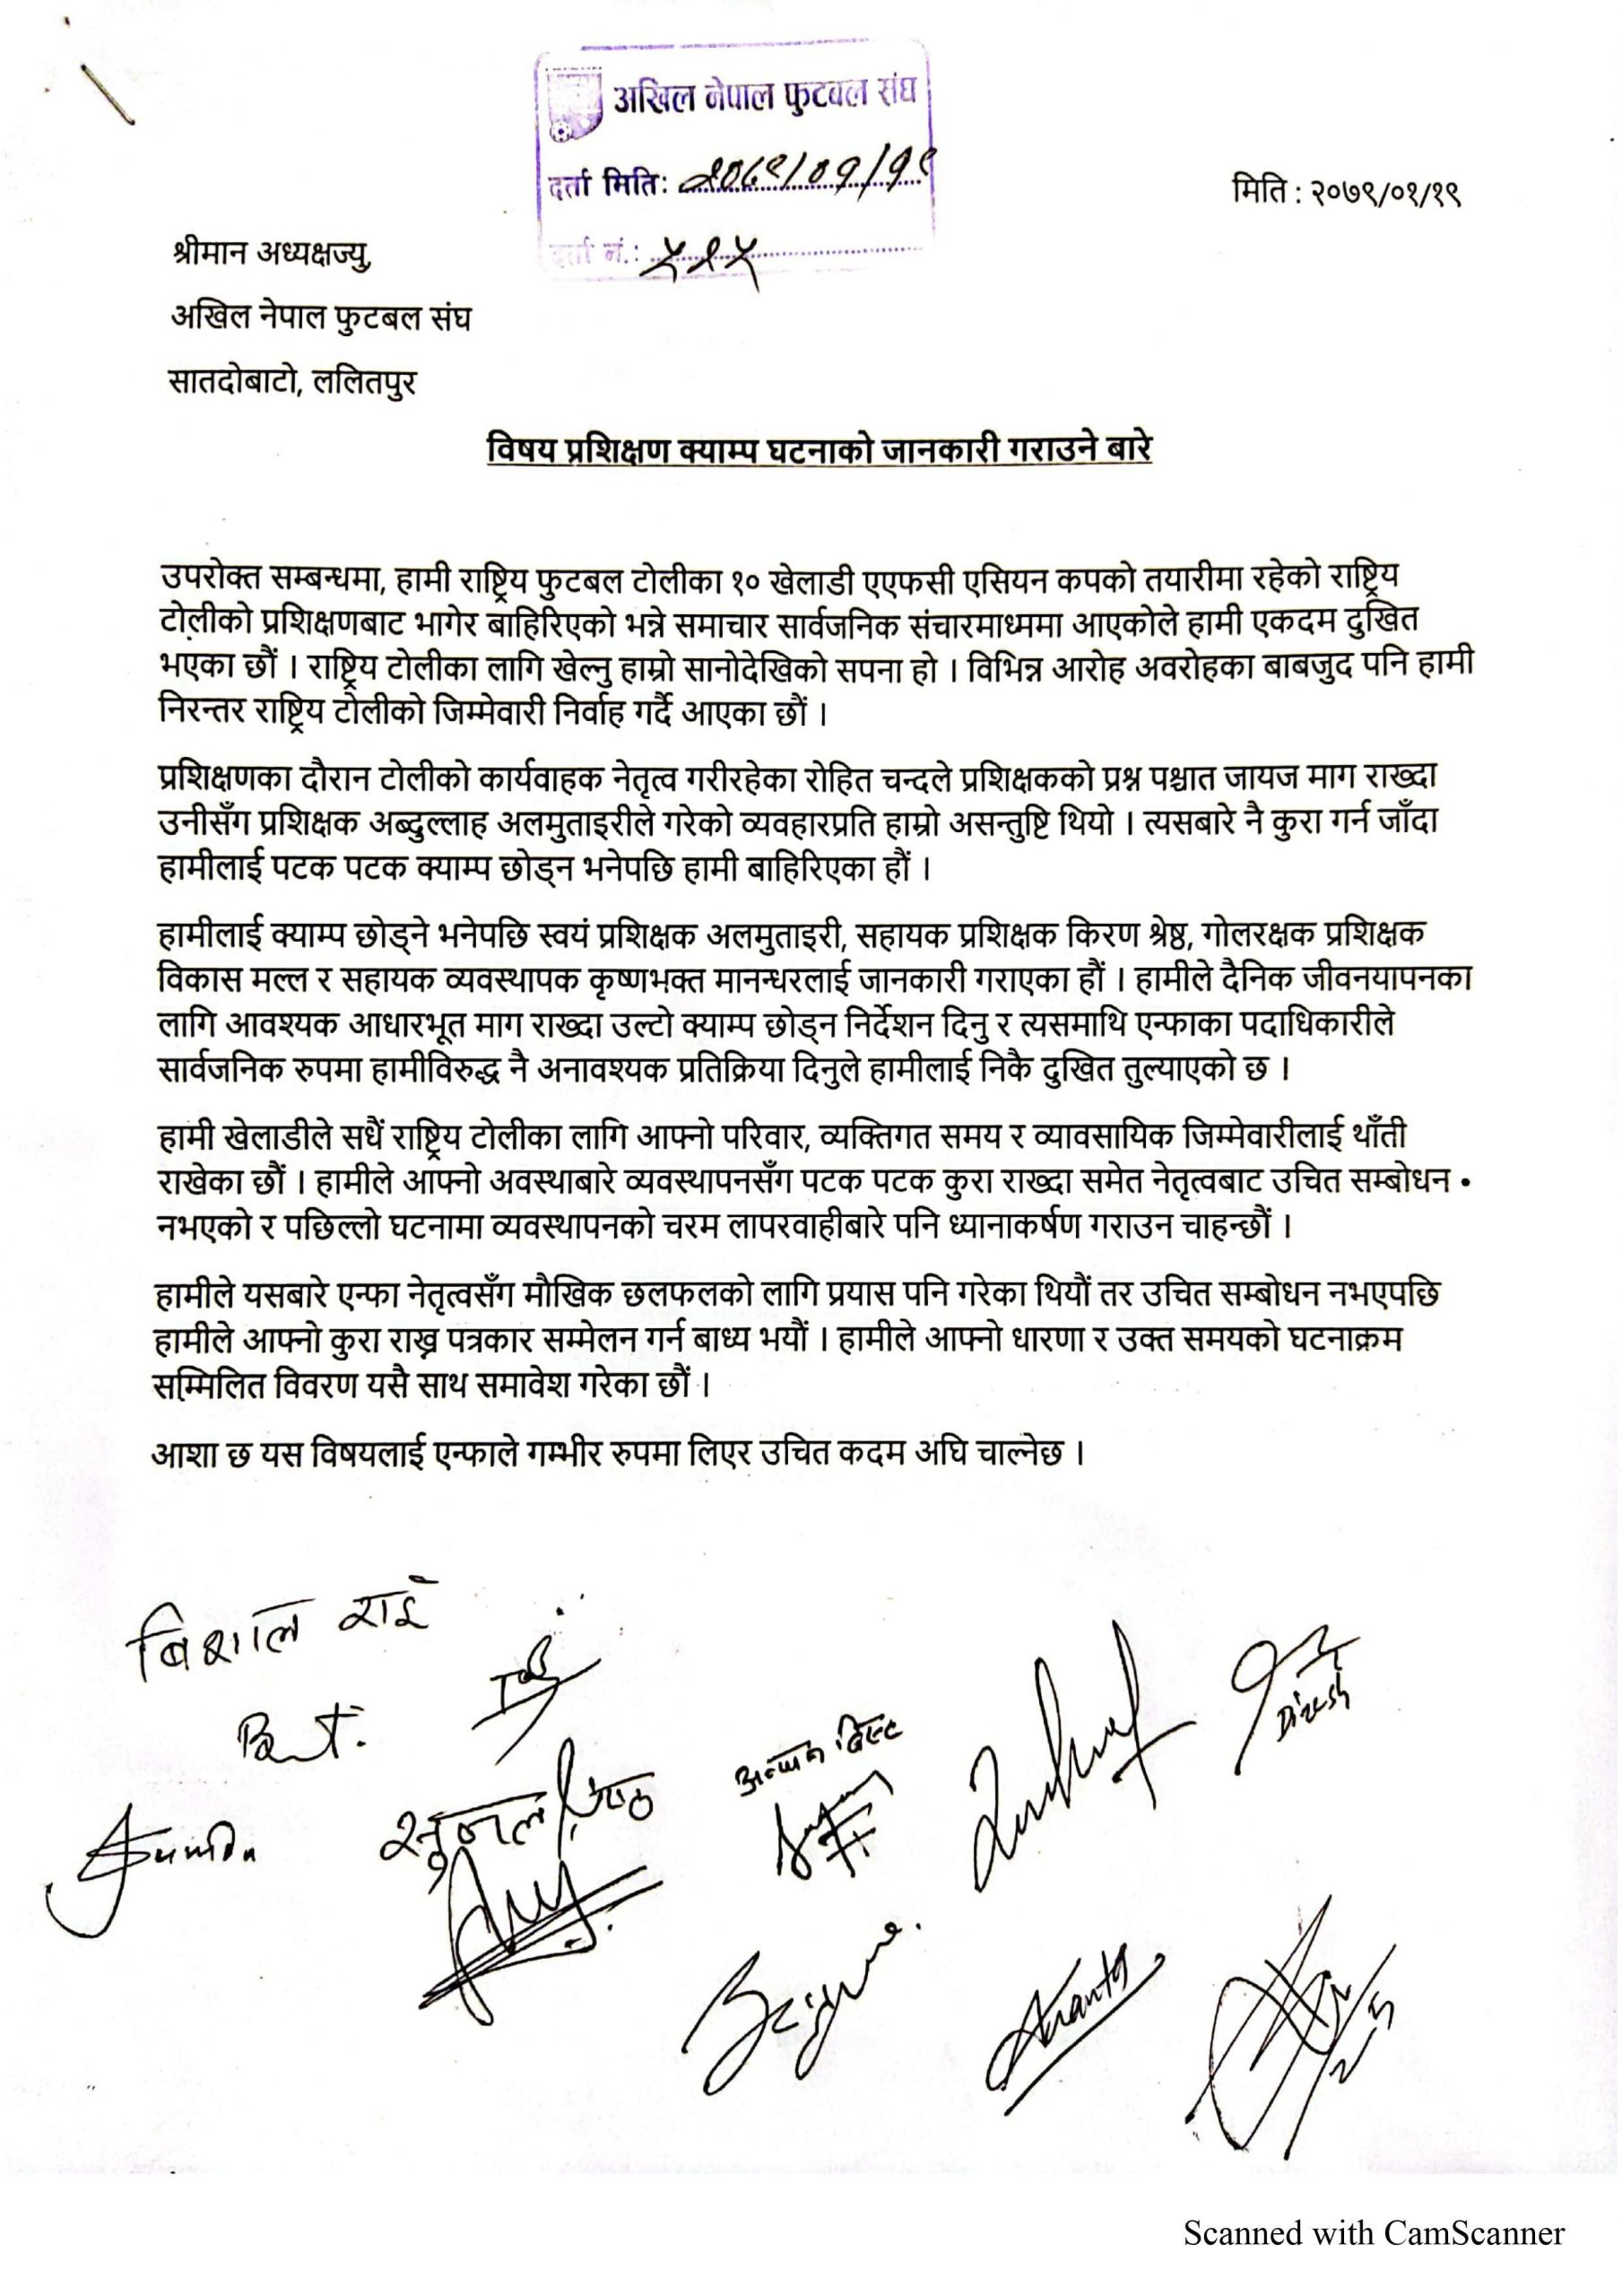 अखिल नेपाल फुटबल संघ
दर्ता मिति: २०७९/०१/१९
मिति : २०७९/०१/१९
दर्ता नं.: ५२५
श्रीमान अध्यक्षज्यु,
अखिल नेपाल फुटबल संघ
सातदोबाटो, ललितपुर
विषय प्रशिक्षण क्याम्प घटनाको जानकारी गराउने बारे
उपरोक्त सम्बन्धमा, हामी राष्ट्रिय फुटबल टोलीका १० खेलाडी एएफसी एसियन कपको तयारीमा रहेको राष्ट्रिय
टोलीको प्रशिक्षणबाट भागेर बाहिरिएको भन्ने समाचार सार्वजनिक संचारमाध्यममा आएकोले हामी एकदम दुखित
भएका छौं । राष्ट्रिय टोलीका लागि खेल्नु हाम्रो सानोदेखिको सपना हो । विभिन्न आरोह अवरोहका बाबजुद पनि हामी
निरन्तर राष्ट्रिय टोलीको जिम्मेवारी निर्वाह गर्दै आएका छौं ।
प्रशिक्षणका दौरान टोलीको कार्यवाहक नेतृत्व गरीरहेका रोहित चन्दले प्रशिक्षकको प्रश्न पश्चात जायज माग राख्दा
उनीसँग प्रशिक्षक अब्दुल्लाह अलमुताइरीले गरेको व्यवहारप्रति हाम्रो असन्तुष्टि थियो । त्यसबारे नै कुरा गर्न जाँदा
हामीलाई पटक पटक क्याम्प छोड्न भनेपछि हामी बाहिरिएका हौं ।
हामीलाई क्याम्प छोड्ने भनेपछि स्वयं प्रशिक्षक अलमुताइरी, सहायक प्रशिक्षक किरण श्रेष्ठ, गोलरक्षक प्रशिक्षक
विकास मल्ल र सहायक व्यवस्थापक कृष्णभक्त मानन्धरलाई जानकारी गराएका हौं । हामीले दैनिक जीवनयापनका
लागि आवश्यक आधारभूत माग राख्दा उल्टो क्याम्प छोड्न निर्देशन दिनु र त्यसमाथि एन्फाका पदाधिकारीले
सार्वजनिक रुपमा हामीविरुद्ध नै अनावश्यक प्रतिक्रिया दिनुले हामीलाई निकै दुखित तुल्याएको छ ।
हामी खेलाडीले सधैं राष्ट्रिय टोलीका लागि आफ्नो परिवार, व्यक्तिगत समय र व्यावसायिक जिम्मेवारीलाई थाँती
राखेका छौं । हामीले आफ्नो अवस्थाबारे व्यवस्थापनसँग पटक पटक कुरा राख्दा समेत नेतृत्वबाट उचित सम्बोधन
नभएको र पछिल्लो घटनामा व्यवस्थापनको चरम लापरवाहीबारे पनि ध्यानाकर्षण गराउन चाहन्छौं ।
हामीले यसबारे एन्फा नेतृत्वसँग मौखिक छलफलको लागि प्रयास पनि गरेका थियौं तर उचित सम्बोधन नभएपछि
हामीले आफ्नो कुरा राख्न पत्रकार सम्मेलन गर्न बाध्य भयौं । हामीले आफ्नो धारणा र उक्त समयको घटनाक्रम
सम्मिलित विवरण यसै साथ समावेश गरेका छौं ।
आशा छ यस विषयलाई एन्फाले गम्भीर रुपमा लिएर उचित कदम अघि चाल्नेछ ।
बिशाल राई
Dinesh
अन्जन बिष्ट
Ananta
Scanned with CamScanner